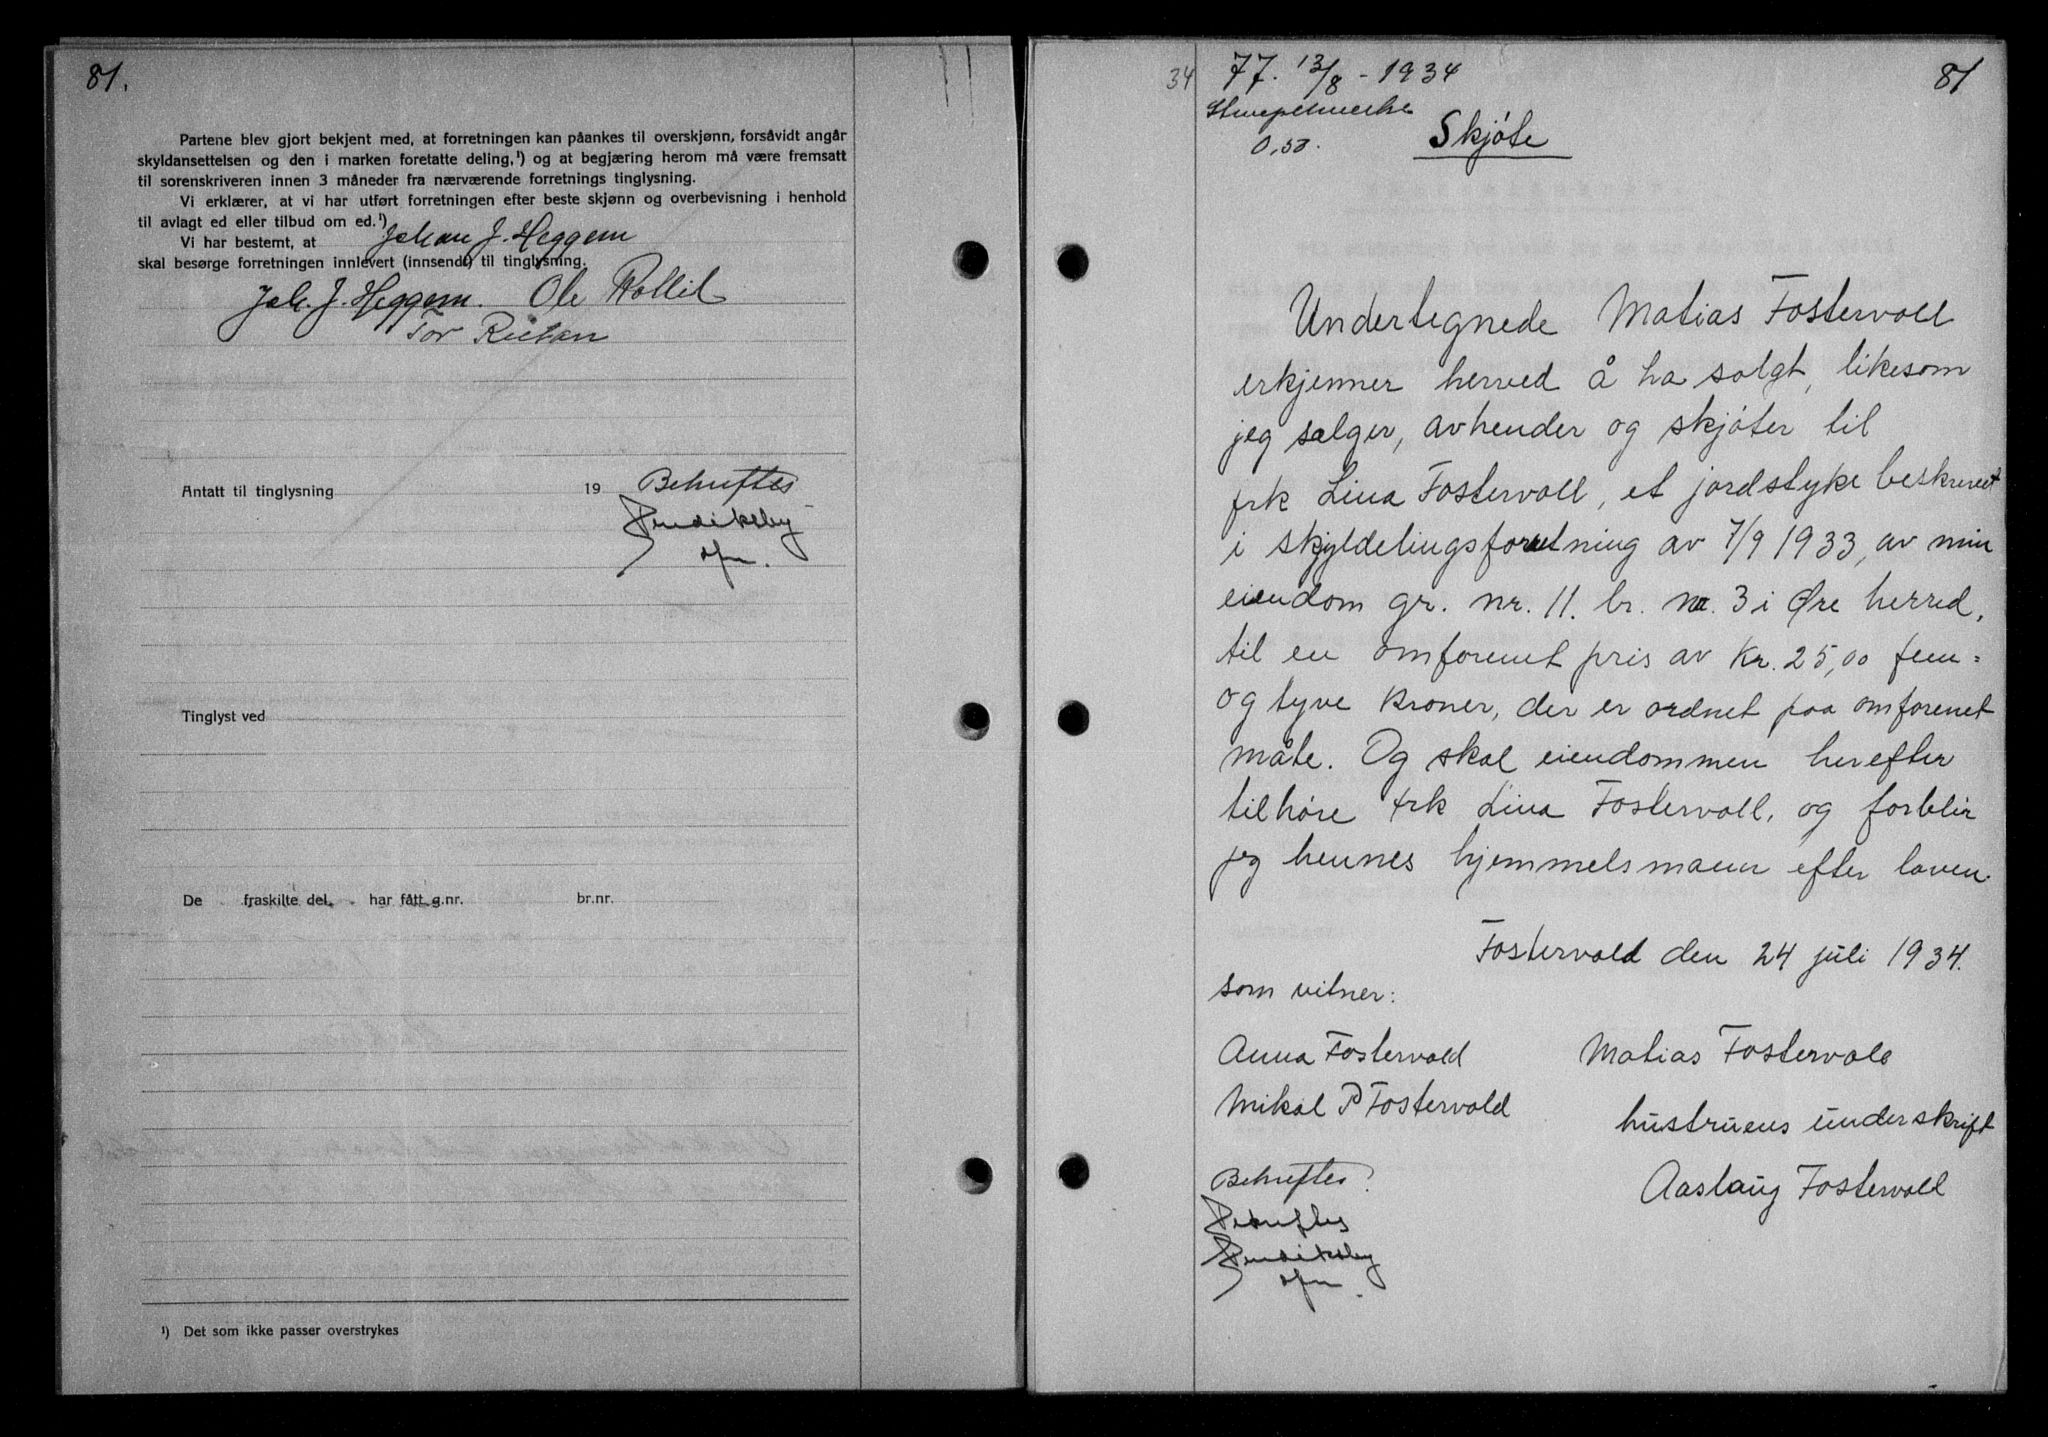 81.
Partene blev gjort bekjent med, at forretningen kan påankes til overskjønn, forsåvidt angår
skyldansettelsen og den i marken foretatte deling,¹) og at begjæring herom må være fremsatt
til sorenskriveren innen 3 måneder fra nærværende forretnings tinglysning.
Vi erklærer, at vi har utført forretningen efter beste skjønn og overbevisning i henhold
til avlagt ed eller tilbud om ed.¹)
Vi har bestemt, at Johan J. Heggem
skal besørge forretningen innlevert (innsendt) til tinglysning.
Joh. J. Heggem. Ole
Tor
Antatt til tinglysning 19
Bekreftes
Tinglyst ved
De fraskilte del. har fått g.nr. br.nr.
¹) Det som ikke passer overstrykes
34 77. 13/8 - 1934 81
Stempelmerke
Skjøte
Undertegnede Matias Fostervold
erkjenner herved å ha solgt, likesom
jeg sælger, avhender og skjøter til
frk Lina Fostervoll, et jordstyke beskrevet
i skjyldelingsforretning av 7/9 1933, av min
eiendom gr. nr. 11. br. nr. 3 i Øre herred,
til en omforenet pris av Kr. 25,00 fem=
og tyve kroner, der er ordnet paa omforenet
måte. Og skal eiendommen herefter
tilhøre frk Lina Fostervoll, og forblir
jeg hennes hjemmelsmann efter loven.
Fostervold den 24 juli 1934.
som vitner:
Anna Fostervold Matias Fostervold
Mikal P Fostervold
hustruens underskrift
Aaslaug Fostervold
Bekreftes
Bekreftes